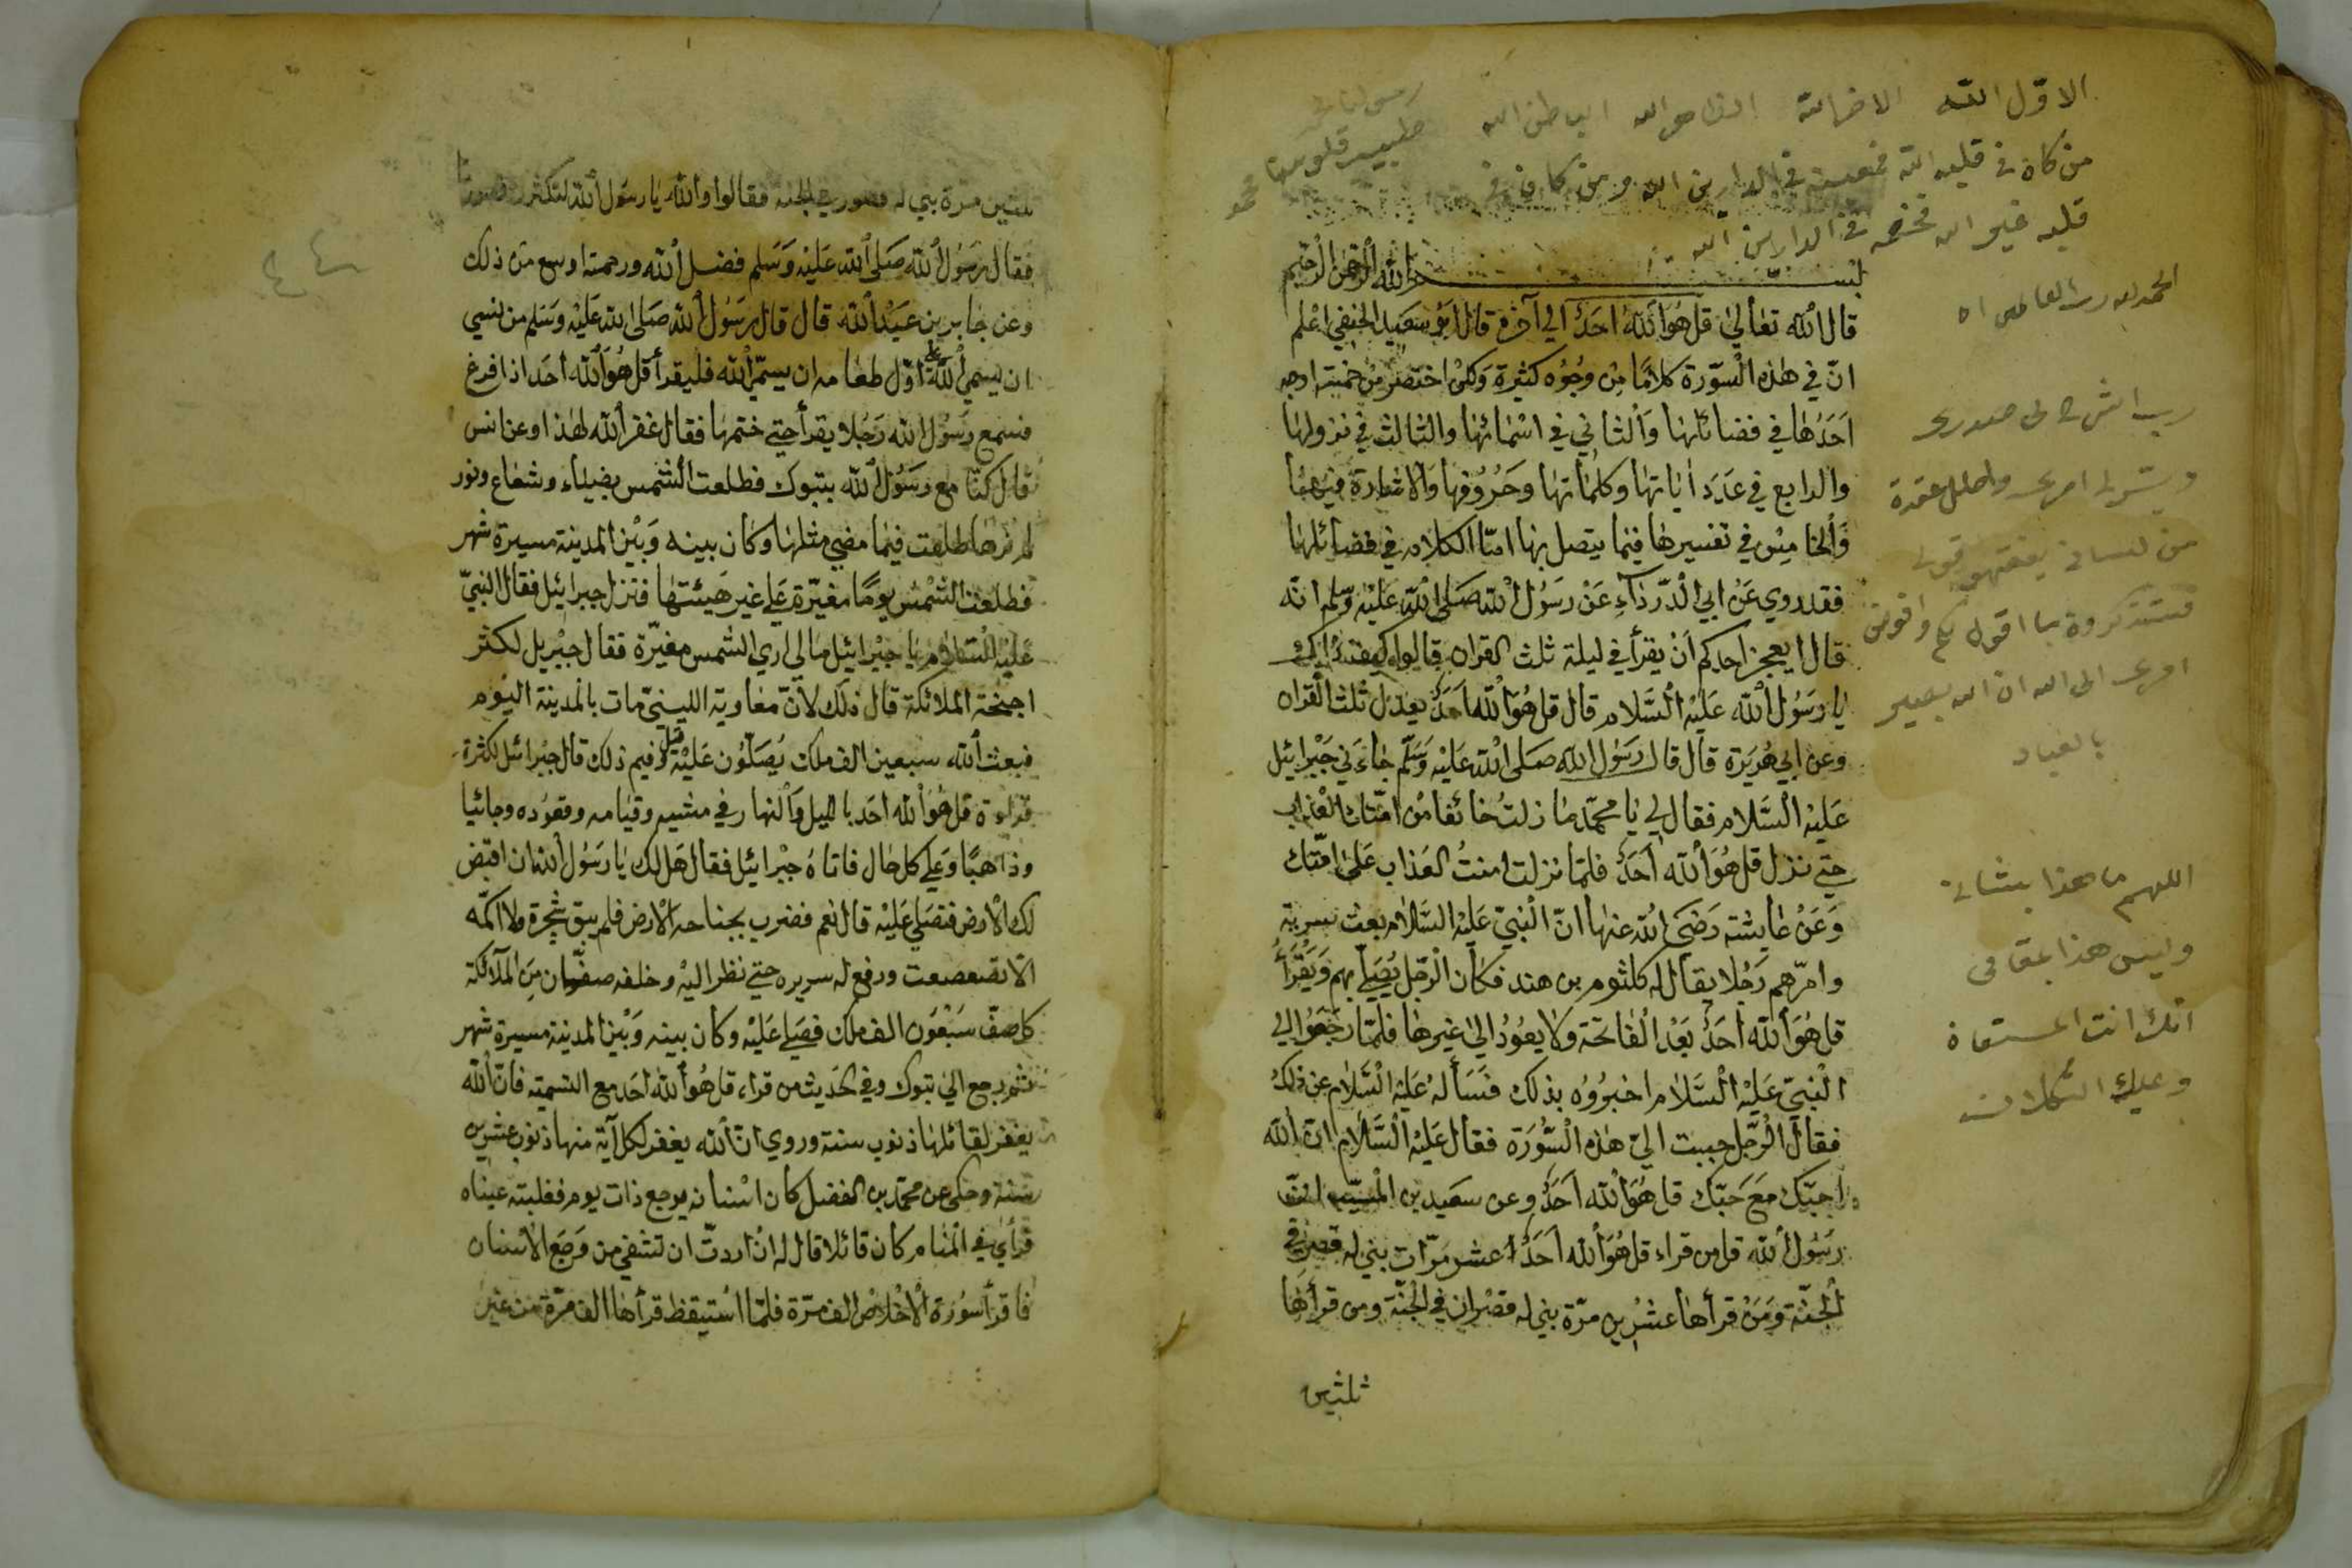 الاوّل الله الاخر الله الظاهر الله الباطن الله
من كان في قلبه الله فمعينه في الدارين الله ومن كان في
قلبه غير الله فخصمه في الدارين الله
الحمد لله رب العالمين
رب اشرح لي صدري
ويسر لي امري واحلل عقدة
من لساني يفقهوا قولي
فستذكرون ما اقول لكم وافوض
امري الى الله ان الله بصير
بالعباد
اللهم ما هذا بشاني
وليس هذا بمقامي
انك انت المستعان
وعليك التكلان
بسم الله الرحمن الرحيم
قال الله تعالى قل هو الله احد الى آخره قال ابو سعيد الحنفي اعلم
انّ في هذه السّورة كلامًا من وجوه كثيرة ولكن اختصر من خمسة اوجه
احدها في فضائلها والثاني في اسمائها والثالث في نزولها
والرابع في عدد اياتها وكلماتها وحروفها والاشارة فيها
والخامس في تفسيرها فيما يتصل بها امّا الكلام في فضائلها
فقد روي عن ابي الدّرداء عن رسول الله صلى الله عليه وسلم انه
قال ايعجز احدكم ان يقرأ في ليلة ثلث القران قالوا
يا رسول الله عليه السّلام قال قل هو الله احد يعدل ثلث القران
وعن ابي هريرة قال قال رسول الله صلى الله عليه وسلّم جاءني جبرائيل
عليه السّلام فقال لي يا محمّد ما زلت خائفا من امّتك العذاب
حتي نزل قل هو الله احد فلمّا نزلت امنت العذاب على امّتك
وعن عايشة رضي الله عنها انّ النبيّ عليه السّلام بعث سرية
وامرّهم رجلا يقال له كلثوم بن هند فكان الرجل يصلّي بهم ويقرأ
قل هو الله احد بعد الفاتحة ولا يعود الى غيرها فلمّا رجعوا الى
النبيّ عليه السّلام اخبروه بذلك فسأله عليه السّلام عن ذلك
فقال الرّجل حببت اليّ هذه السّورة فقال عليه السّلام انّ الله
احبّك مع حبّك قل هو الله احد وعن سعيد بن المسيّب انّ
رسول الله قال من قراء قل هو الله احد عشر مرّات بني له قصر في
الجنّة ومن قرأها عشرين مرّة بني له قصران في الجنّة ومن قرأها
ثلثين
ثلثين مرّة بني له قصور في الجنة فقالوا والله يا رسول الله لتكثرن قصورنا
فقال رسول الله صلى الله عليه وسلم فضل الله ورحمته اوسع من ذلك
وعن جابر بن عبد الله قال قال رسول الله صلى الله عليه وسلم من نسي
ان يسمي الله على اوّل طعامه ان يسمّ الله فليقرأ قل هو الله أحد اذا فرغ
فسمع رسول الله رجلا يقرأ حتي ختمها فقال غفر الله لهذا وعن انس
قال كنّا مع رسول الله بتبوك فطلعت الشّمس بضياء وشعاع ونور
لم نرها طلعت فيما مضي مثلها وكان بينه وبين المدينة مسيرة شهر
فطلعت الشّمس يومًا مغيّرة على غير هيئتها فنزل جبرائيل فقال النبيّ
عليه السّلام يا جبرائيل ما لي اري الشمس مغيّرة فقال جبريل لكثر
اجنحة الملائكة قال ذلك لانّ معاوية الليثيّ مات بالمدينة اليوم
فبعث الله سبعين الف ملك يصلّون عليه قيل وفيم ذلك قال جبرائيل لكثرة
قراءة قل هو الله احد بالليل والنهار في مشيه وقيامه وقعوده وجائيا
وذاهبًا وعلي كل حال فاتاه جبرائيل فقال هل لك يا رسول الله ان اقبض
لك الارض فتصلي عليه قال نعم فضرب بجناحه الارض فلم يبق شجرة ولا اكمة
الّا تضعضعت ورفع له سريره حتي نظر اليه وخلفه صفّان من الملآئكة
كل صفّ سبعون الف ملك فصلى عليه وكان بينه وبين المدينة مسيرة شهر
ثم رجع الى تبوك وفي الحديث من قراء قل هو الله احد مع التسمية فانّ الله
يغفر لقائلها ذنوب سنة وروي انّ الله يغفر لكل آية منها ذنوب عشرين
سنة وحكي عن محمّد بن الفضل كان اسنانه يوجع ذات يوم فغلبته عيناه
فرأى في المنام كان قائلا قال له ان اردتّ ان تشفي من وجع الاسنان
فاقرأ سورة الاخلاص الف مرّة فلمّا استيقظ قرأها الف مرّة من غير